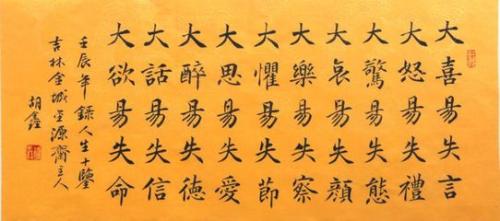 大喜易失言
大怒易失禮
大驚易失態
大哀易失顏
大樂易失察
大懼易失節
大思易失愛
大醉易失德
大話易失信
大欲易失命
壬辰年錄人生十鑒
吉林金城源齋主人
胡鑫